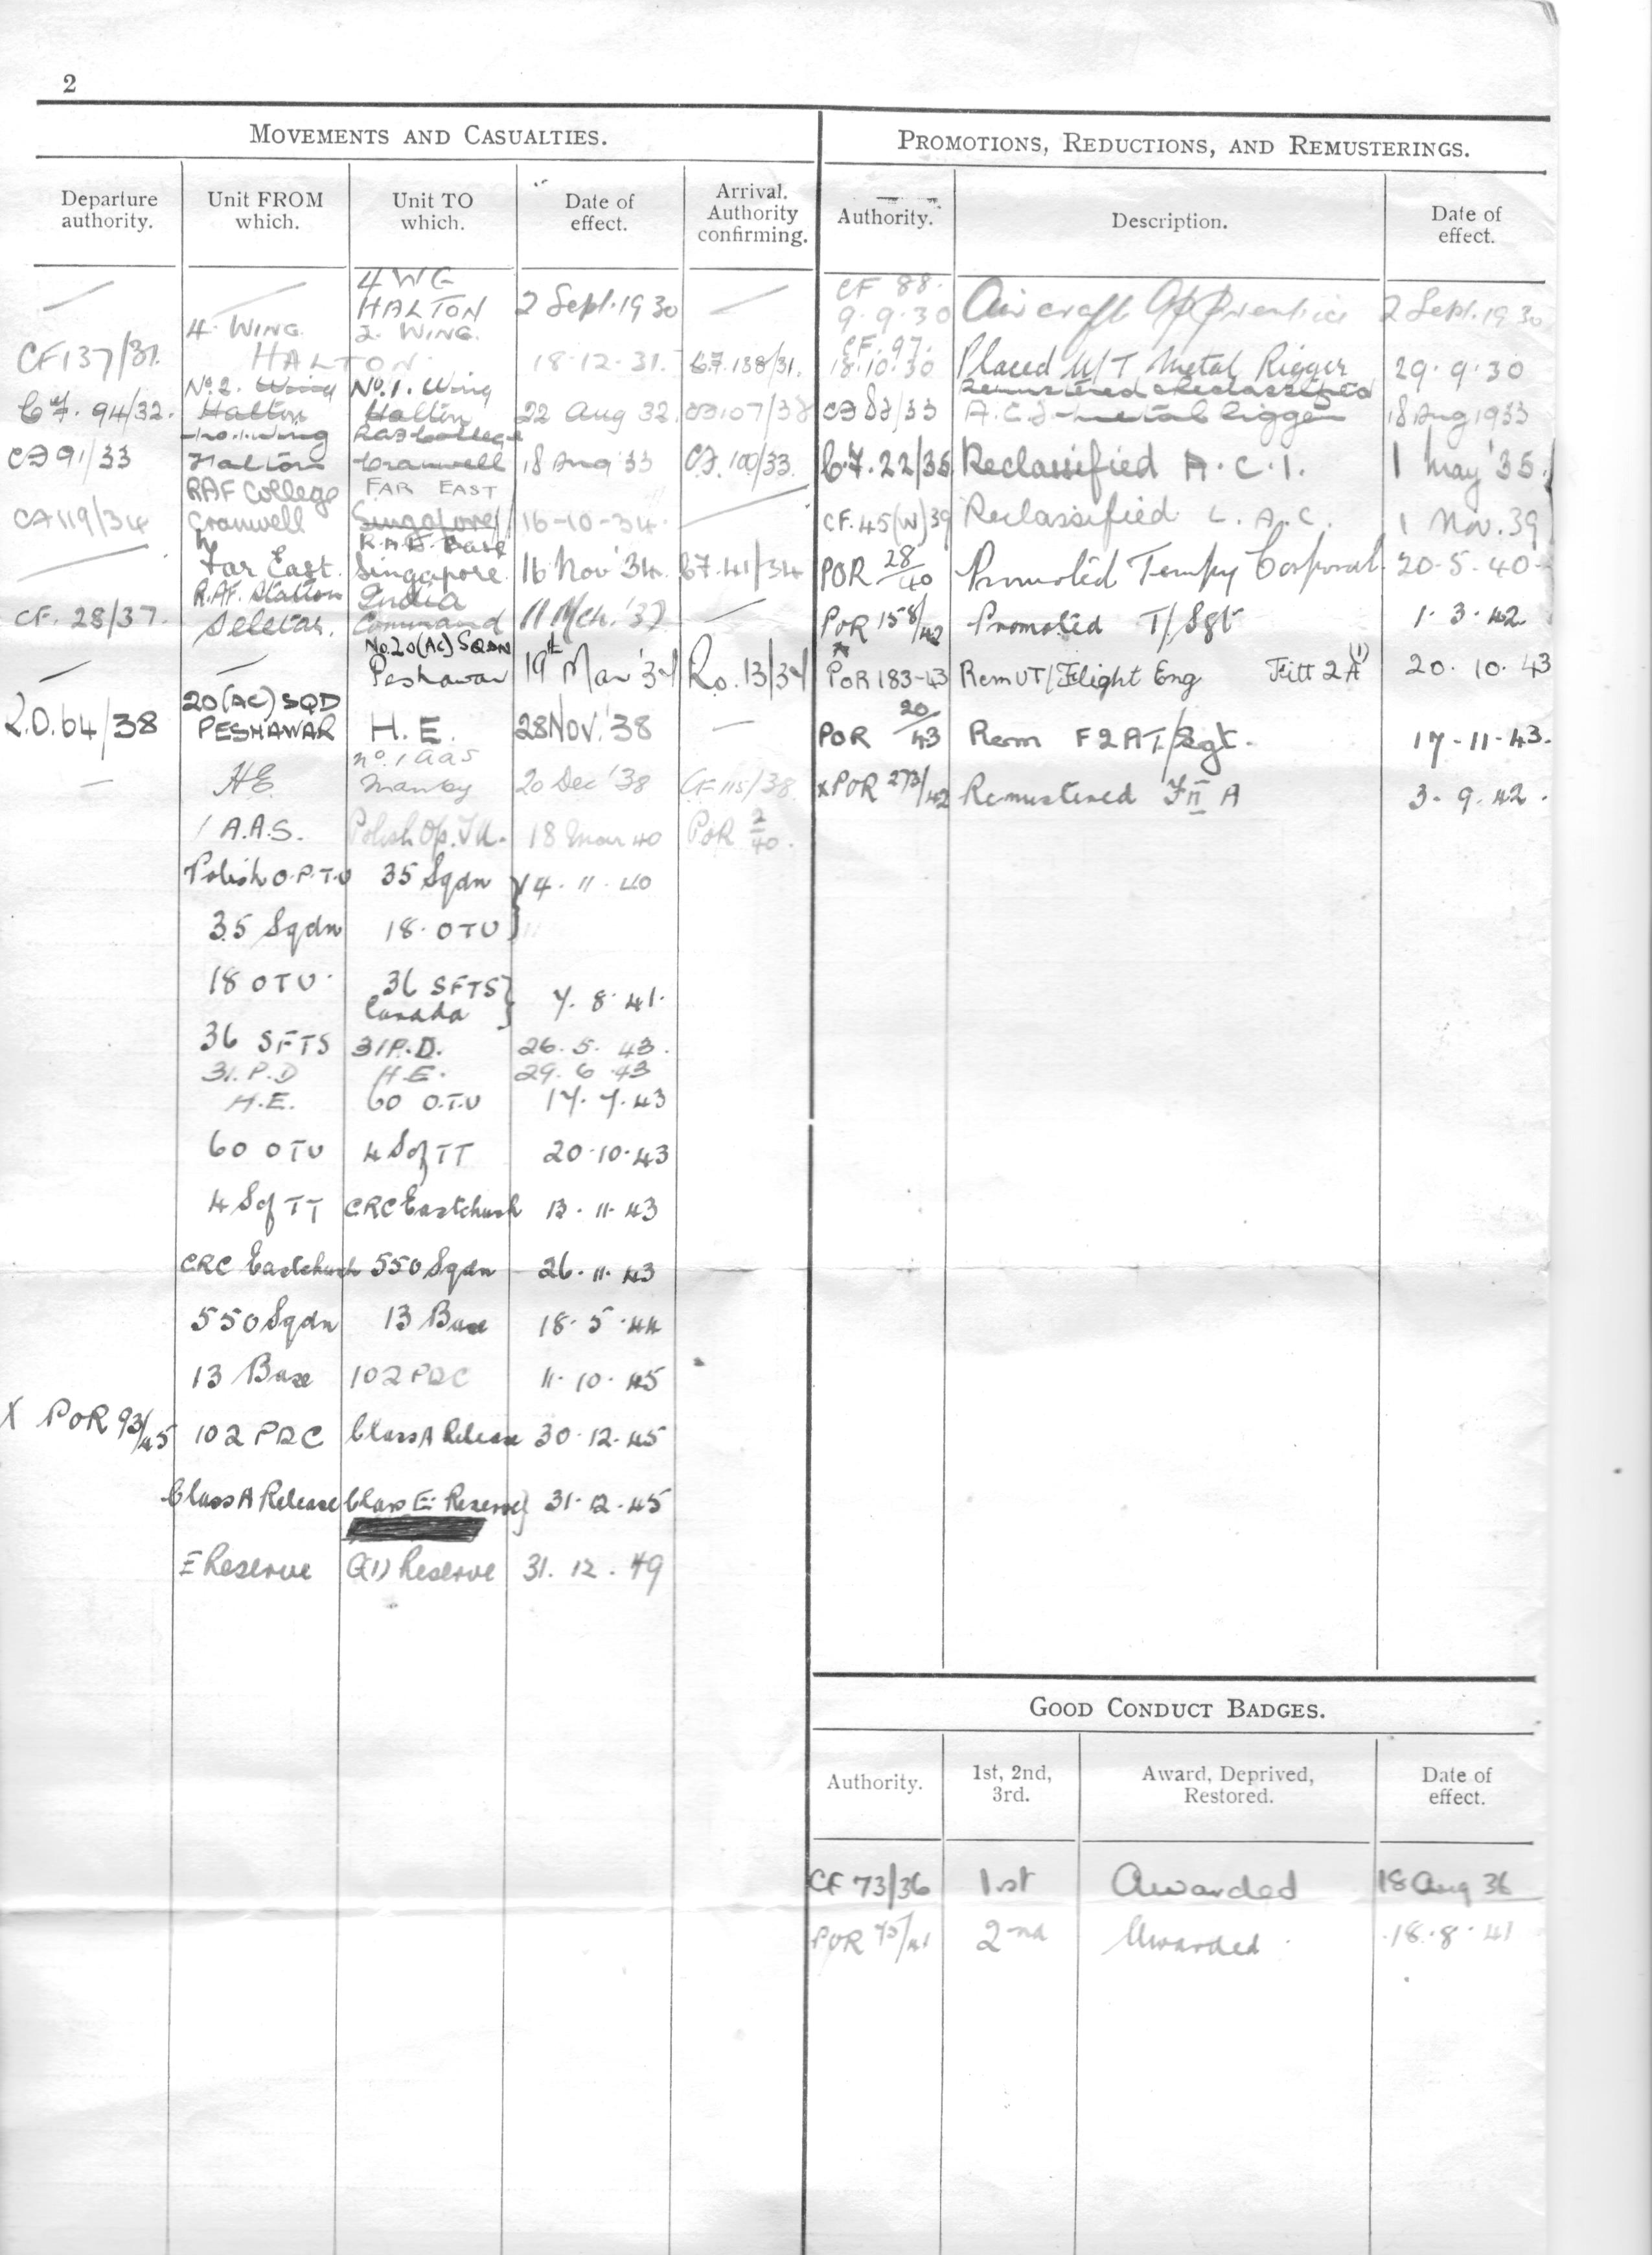 2
MOVEMENTS AND CASUALTIES.
Departure authority. Unit FROM which. Unit TO which. Date of effect. Arrival. Authority confirming.
— — 4 WG HALTON 2 Sept. 1930 —
CF137/31. 4. WING HALTON 2. WING. 18.12.31. C.F. 138/31.
C.F. 94/32. No. 2. Wing Halton No. 1. Wing Halton 22 Aug 32.
CF 91/33 No. 1. Wing Halton RAF College Cranwell 18 Aug '33 CF. 100/33.
CF 119/34 RAF College Cranwell FAR EAST Singapore 16-10-34. —
— Far East. R.A.F. Base Singapore. 16 Nov '34. C.F. 41/34
CF. 28/37. R.AF. Station Seletar. India Command 11 Mch. '37 —
— — No. 20 (AC) SQDN Peshawar 19th Mar '37 Ro. 13/37
R.O. 64/38 20 (AC) SQD PESHAWAR H.E. 28 NOV. '38 —
— HE No. 1 AAS Manby 20 Dec '38 CF 115/38
1 A.A.S. Polish Op. T.U. 18 Mar 40 PoR 2/40.
Polish O.P.T.U 35 Sqdn } 4. 11. 40
35 Sqdn 18. OTU }
18 OTU. 36 SFTS Canada } 7. 8. 41.
36 SFTS 31 P.D. 26. 5. 43.
31. P.D H.E. 29. 6. 43
H.E. 60 O.T.U 17. 7. 43
60 OTU 4 S of TT 20.10.43
4 S of TT CRC Eastchurch 13. 11. 43
CRC Eastchurch 550 Sqdn 26. 11. 43
550 Sqdn 13 Base 18. 5. 44
13 Base 102 PDC 11. 10. 45
X PoR 93/45 102 PDC Class A Release 30. 12. 45
Class A Release Class E Reserve } 31. 12. 45
E Reserve G(1) Reserve 31. 12. 49
PROMOTIONS, REDUCTIONS, AND REMUSTERINGS.
Authority. Description. Date of effect.
CF 88. 9.9.30 Aircraft Apprentice 2 Sept. 1930
CF. 97. 18.10.30 Placed U/T Metal Rigger 29.9.30
CF 83/33 Remustered & Reclassified A.C.2. metal Rigger 18 Aug 1933
C.F. 22/35 Reclassified A.C.1. 1 May '35.
CF. 45(W)39 Reclassified L.A.C. 1 Nov. 39
POR 28/40 Promoted Tempy Corporal. 20-5-40-
PoR 158/42 Promoted T/Sgt 1. 3. 42.
x
PoR 183-43 Rem UT/Flight Eng Fitt 2A (1) 20. 10. 43
POR 20/43 Rem F2A T/Sgt. 17-11-43.
x POR 273/42 Remustered F II A 3. 9. 42.
GOOD CONDUCT BADGES.
Authority. 1st, 2nd, 3rd. Award, Deprived, Restored. Date of effect.
CF 73/36 1st Awarded 18 Aug 36
POR 75/41 2nd Awarded 18.8.41